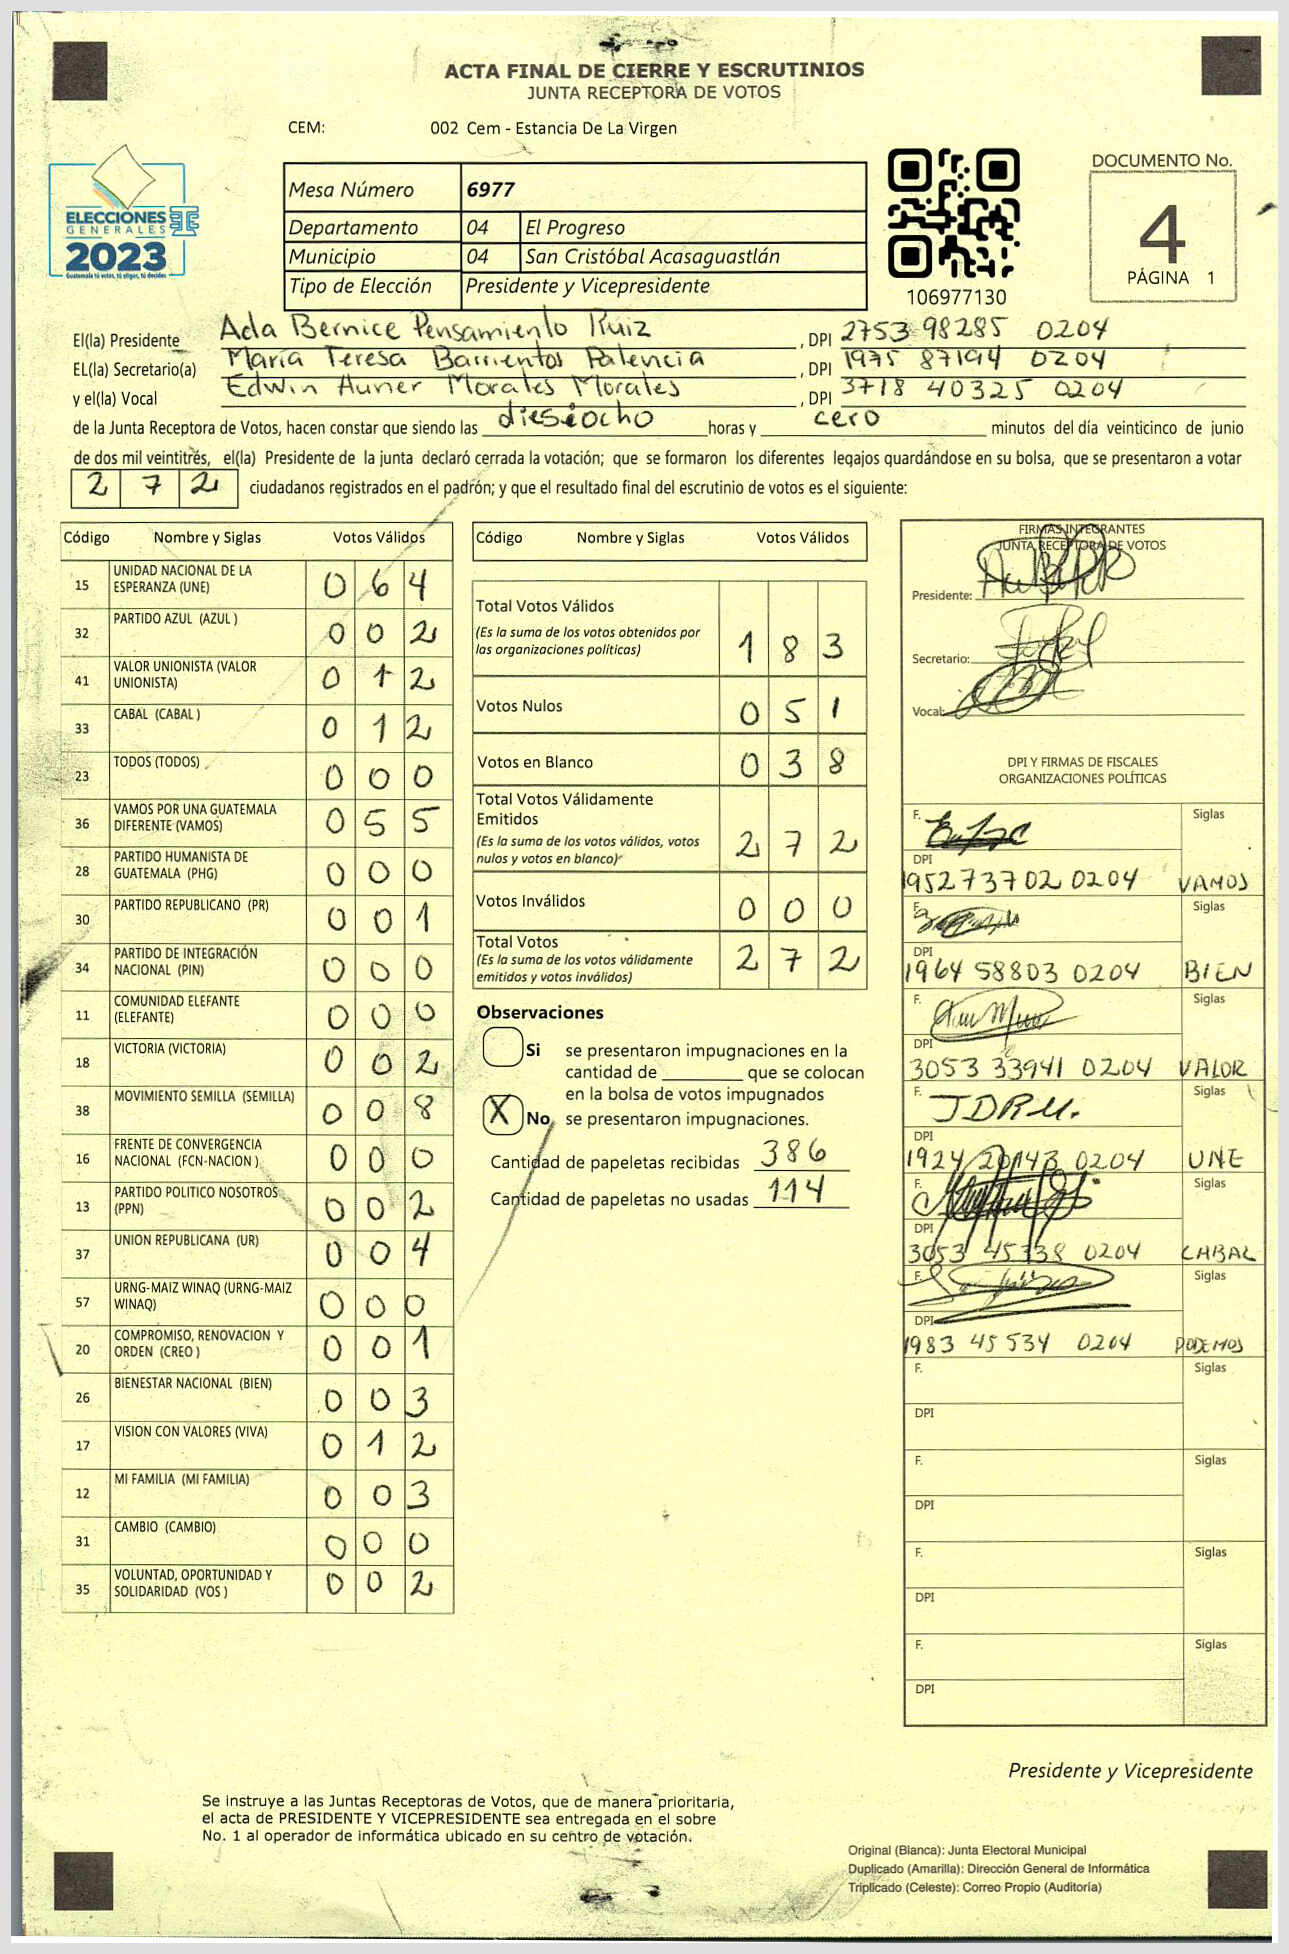 ACTA FINAL DE CIERRE Y ESCRUTINIOS
JUNTA RECEPTORA DE VOTOS
CEM: 002 Cem - Estancia De La Virgen
ELECCIONES
GENERALES
2023
Guatemala tú votas, tú eliges, tú decides
Mesa Número 6977
Departamento 04 El Progreso
Municipio 04 San Cristóbal Acasaguastlán
Tipo de Elección Presidente y Vicepresidente
106977130
DOCUMENTO No.
4
PÁGINA 1
El(la) Presidente Ada Bernice Pensamiento Ruiz , DPI 2753 98285 0204
EL(la) Secretario(a) Maria Teresa Barrientos Palencia , DPI 1975 87194 0204
y el(la) Vocal Edwin Auner Morales Morales , DPI 3718 40325 0204
de la Junta Receptora de Votos, hacen constar que siendo las diesiocho horas y cero minutos del día veinticinco de junio
de dos mil veintitrés, el(la) Presidente de la junta declaró cerrada la votación; que se formaron los diferentes legajos guardándose en su bolsa, que se presentaron a votar
2 7 2 ciudadanos registrados en el padrón; y que el resultado final del escrutinio de votos es el siguiente:
Código Nombre y Siglas Votos Válidos
15 UNIDAD NACIONAL DE LA ESPERANZA (UNE) 0 6 4
32 PARTIDO AZUL (AZUL ) 0 0 2
41 VALOR UNIONISTA (VALOR UNIONISTA) 0 1 2
33 CABAL (CABAL ) 0 1 2
23 TODOS (TODOS) 0 0 0
36 VAMOS POR UNA GUATEMALA DIFERENTE (VAMOS) 0 5 5
28 PARTIDO HUMANISTA DE GUATEMALA (PHG) 0 0 0
30 PARTIDO REPUBLICANO (PR) 0 0 1
34 PARTIDO DE INTEGRACIÓN NACIONAL (PIN) 0 0 0
11 COMUNIDAD ELEFANTE (ELEFANTE) 0 0 0
18 VICTORIA (VICTORIA) 0 0 2
38 MOVIMIENTO SEMILLA (SEMILLA) 0 0 8
16 FRENTE DE CONVERGENCIA NACIONAL (FCN-NACION ) 0 0 0
13 PARTIDO POLITICO NOSOTROS (PPN) 0 0 2
37 UNION REPUBLICANA (UR) 0 0 4
57 URNG-MAIZ WINAQ (URNG-MAIZ WINAQ) 0 0 0
20 COMPROMISO, RENOVACION Y ORDEN (CREO ) 0 0 1
26 BIENESTAR NACIONAL (BIEN) 0 0 3
17 VISION CON VALORES (VIVA) 0 1 2
12 MI FAMILIA (MI FAMILIA) 0 0 3
31 CAMBIO (CAMBIO) 0 0 0
35 VOLUNTAD, OPORTUNIDAD Y SOLIDARIDAD (VOS ) 0 0 2
Código Nombre y Siglas Votos Válidos
Total Votos Válidos
(Es la suma de los votos obtenidos por las organizaciones políticas) 1 8 3
Votos Nulos 0 5 1
Votos en Blanco 0 3 8
Total Votos Válidamente Emitidos
(Es la suma de los votos válidos, votos nulos y votos en blanco) 2 7 2
Votos Inválidos 0 0 0
Total Votos
(Es la suma de los votos válidamente emitidos y votos inválidos) 2 7 2
Observaciones
Si se presentaron impugnaciones en la
cantidad de ________ que se colocan
en la bolsa de votos impugnados
X No se presentaron impugnaciones.
Cantidad de papeletas recibidas 386
Cantidad de papeletas no usadas 114
FIRMAS INTEGRANTES
JUNTA RECEPTORA DE VOTOS
Presidente:
Secretario:
Vocal:
DPI Y FIRMAS DE FISCALES
ORGANIZACIONES POLÍTICAS
F. Siglas
DPI
195273702 0204 VAMOS
F. Siglas
DPI
1964 58803 0204 BIEN
F. Siglas
DPI
3053 33941 0204 VALOR
F. JDRM. Siglas
DPI
1924 20143 0204 UNE
F. Siglas
DPI
3053 45338 0204 CABAL
F. Siglas
DPI
1983 45534 0204 PODEMOS
F. Siglas
DPI
F. Siglas
DPI
F. Siglas
DPI
F. Siglas
DPI
Presidente y Vicepresidente
Se instruye a las Juntas Receptoras de Votos, que de manera prioritaria,
el acta de PRESIDENTE Y VICEPRESIDENTE sea entregada en el sobre
No. 1 al operador de informática ubicado en su centro de votación.
Original (Blanca): Junta Electoral Municipal
Duplicado (Amarilla): Dirección General de Informática
Triplicado (Celeste): Correo Propio (Auditoría)